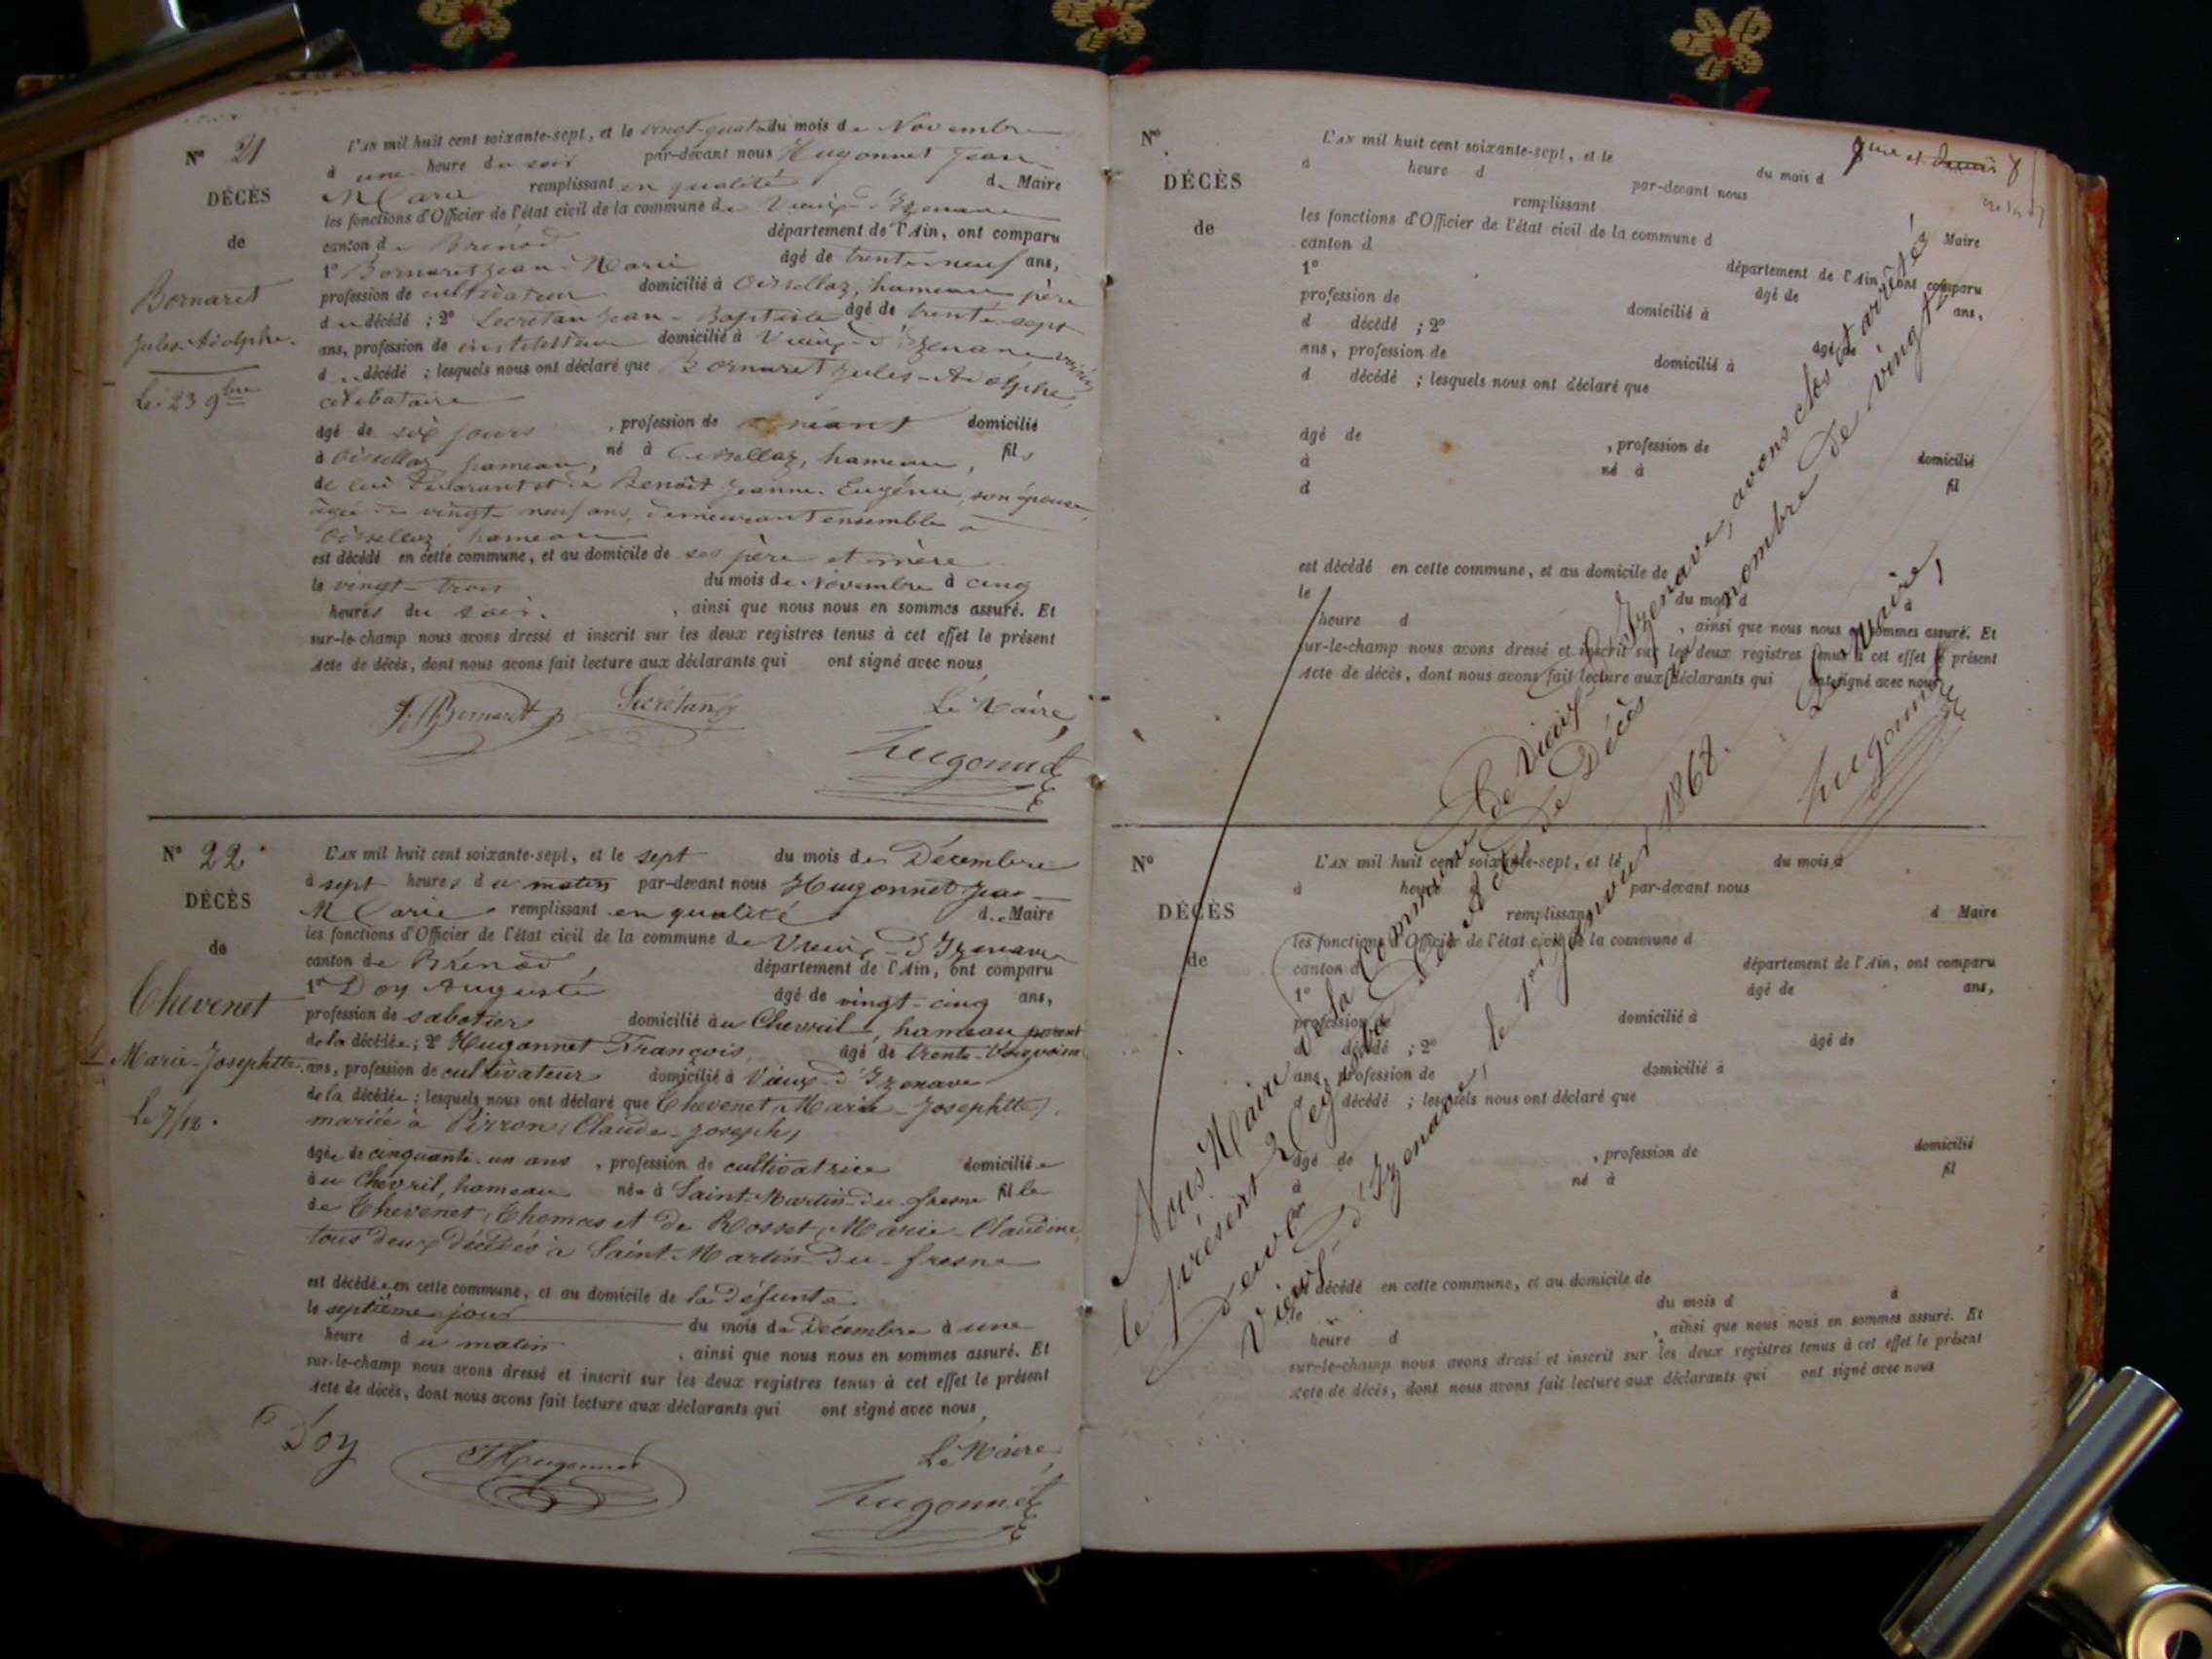 N° 21
DÉCÈS
de
Bornaret
Jules-Adolphe.
Le 23 9bre
L'AN mil huit cent soixante-sept, et le vingt-quatre du mois de Novembre
à une heure du soir par-devant nous Hugonnet Jean-
Marie remplissant en qualité de Maire
les fonctions d'Officier de l'état civil de la commune de Vieux-d'Izenave
canton de Brénod département de l'Ain, ont comparu
1° Bornaret Jean-Marie âgé de trente-neuf ans,
profession de cultivateur domicilié à Oisellaz, hameau père
du décédé ; 2° Secrétan Jean-Baptiste âgé de trente-sept
ans, profession de instituteur domicilié à Vieux-d'Izenave voisin
du décédé ; lesquels nous ont déclaré que Bornaret Jules-Adolphe,
célibataire
âgé de six jours , profession de néant domicilié
à Oisellaz hameau, né à Oisellaz, hameau, fils
de lui déclarant et de Benoît Jeanne-Eugénie, son épouse,
âgée de vingt-neuf ans, demeurant ensemble à
Oisellaz, hameau
est décédé en cette commune, et au domicile de ses père et mère
le vingt-trois du mois de Novembre à cinq
heures du soir. , ainsi que nous nous en sommes assuré. Et
sur-le-champ nous avons dressé et inscrit sur les deux registres tenus à cet effet le présent
Acte de décès, dont nous avons fait lecture aux déclarants qui ont signé avec nous
J. Bornaret Secrétan Le Maire,
Hugonnet
N° 22
DÉCÈS
de
Chevenet
Marie-Josephtte.
Le 7/12.
L'AN mil huit cent soixante-sept, et le sept du mois de Décembre
à sept heures du matin par-devant nous Hugonnet Jean-
Marie remplissant en qualité de Maire
les fonctions d'Officier de l'état civil de la commune de Vieux-d'Izenave
canton de Brénod, département de l'Ain, ont comparu
1° Doy Auguste âgé de vingt-cinq ans,
profession de sabotier domicilié au Chevril, hameau parent
de la décédée ; 2° Hugonnet François, âgé de trente- voisin
ans, profession de cultivateur domicilié à Vieux-d'Izenave
de la décédée ; lesquels nous ont déclaré que Chevenet Marie-Josephtte,
mariée à Pirron Claude-Joseph,
âgée de cinquante-un ans , profession de cultivatrice domiciliée
au Chevril, hameau née à Saint-Martin-du-fresne fille
de Chevenet, Thomas et de Rosset, Marie-Claudine
tous deux décédés à Saint-Martin-du-fresne
est décédée en cette commune, et au domicile de la défunte
le septième jour du mois de Décembre à une
heure du matin , ainsi que nous nous en sommes assuré. Et
sur-le-champ nous avons dressé et inscrit sur les deux registres tenus à cet effet le présent
Acte de décès, dont nous avons fait lecture aux déclarants qui ont signé avec nous,
Doy Hugonnet Le Maire,
Hugonnet
N°
DÉCÈS
de
L'AN mil huit cent soixante-sept, et le du mois d
à heure d par-devant nous
remplissant d Maire
les fonctions d'Officier de l'état civil de la commune d
canton d département de l'Ain, ont comparu
1° âgé de ans,
profession de domicilié à
d décédé ; 2° âgé de
ans, profession de domicilié à
d décédé ; lesquels nous ont déclaré que
âgé de , profession de domicilié
à né à fil
d
est décédé en cette commune, et au domicile de
le du mois d à
heure d , ainsi que nous nous en sommes assuré. Et
sur-le-champ nous avons dressé et inscrit sur les deux registres tenus à cet effet le présent
Acte de décès, dont nous avons fait lecture aux déclarants qui ont signé avec nous
N°
DÉCÈS
de
L'AN mil huit cent soixante-sept, et le du mois d
à heure d par-devant nous
remplissant d Maire
les fonctions d'Officier de l'état civil de la commune d
canton d département de l'Ain, ont comparu
1° âgé de ans,
profession de domicilié à
d décédé ; 2° âgé de
ans, profession de domicilié à
d décédé ; lesquels nous ont déclaré que
âgé de , profession de domicilié
à né à fil
est décédé en cette commune, et au domicile de
le du mois d à
heure d , ainsi que nous nous en sommes assuré. Et
sur-le-champ nous avons dressé et inscrit sur les deux registres tenus à cet effet le présent
Acte de décès, dont nous avons fait lecture aux déclarants qui ont signé avec nous
Nous Maire de la Commune de Vieux-d'Izenave, avons clos et arrêté
le présent Registre des Actes de Décès au nombre de vingt-
deux
Vieux-d'Izenave, le 1er janvier 1868.
Le Maire,
Hugonnet